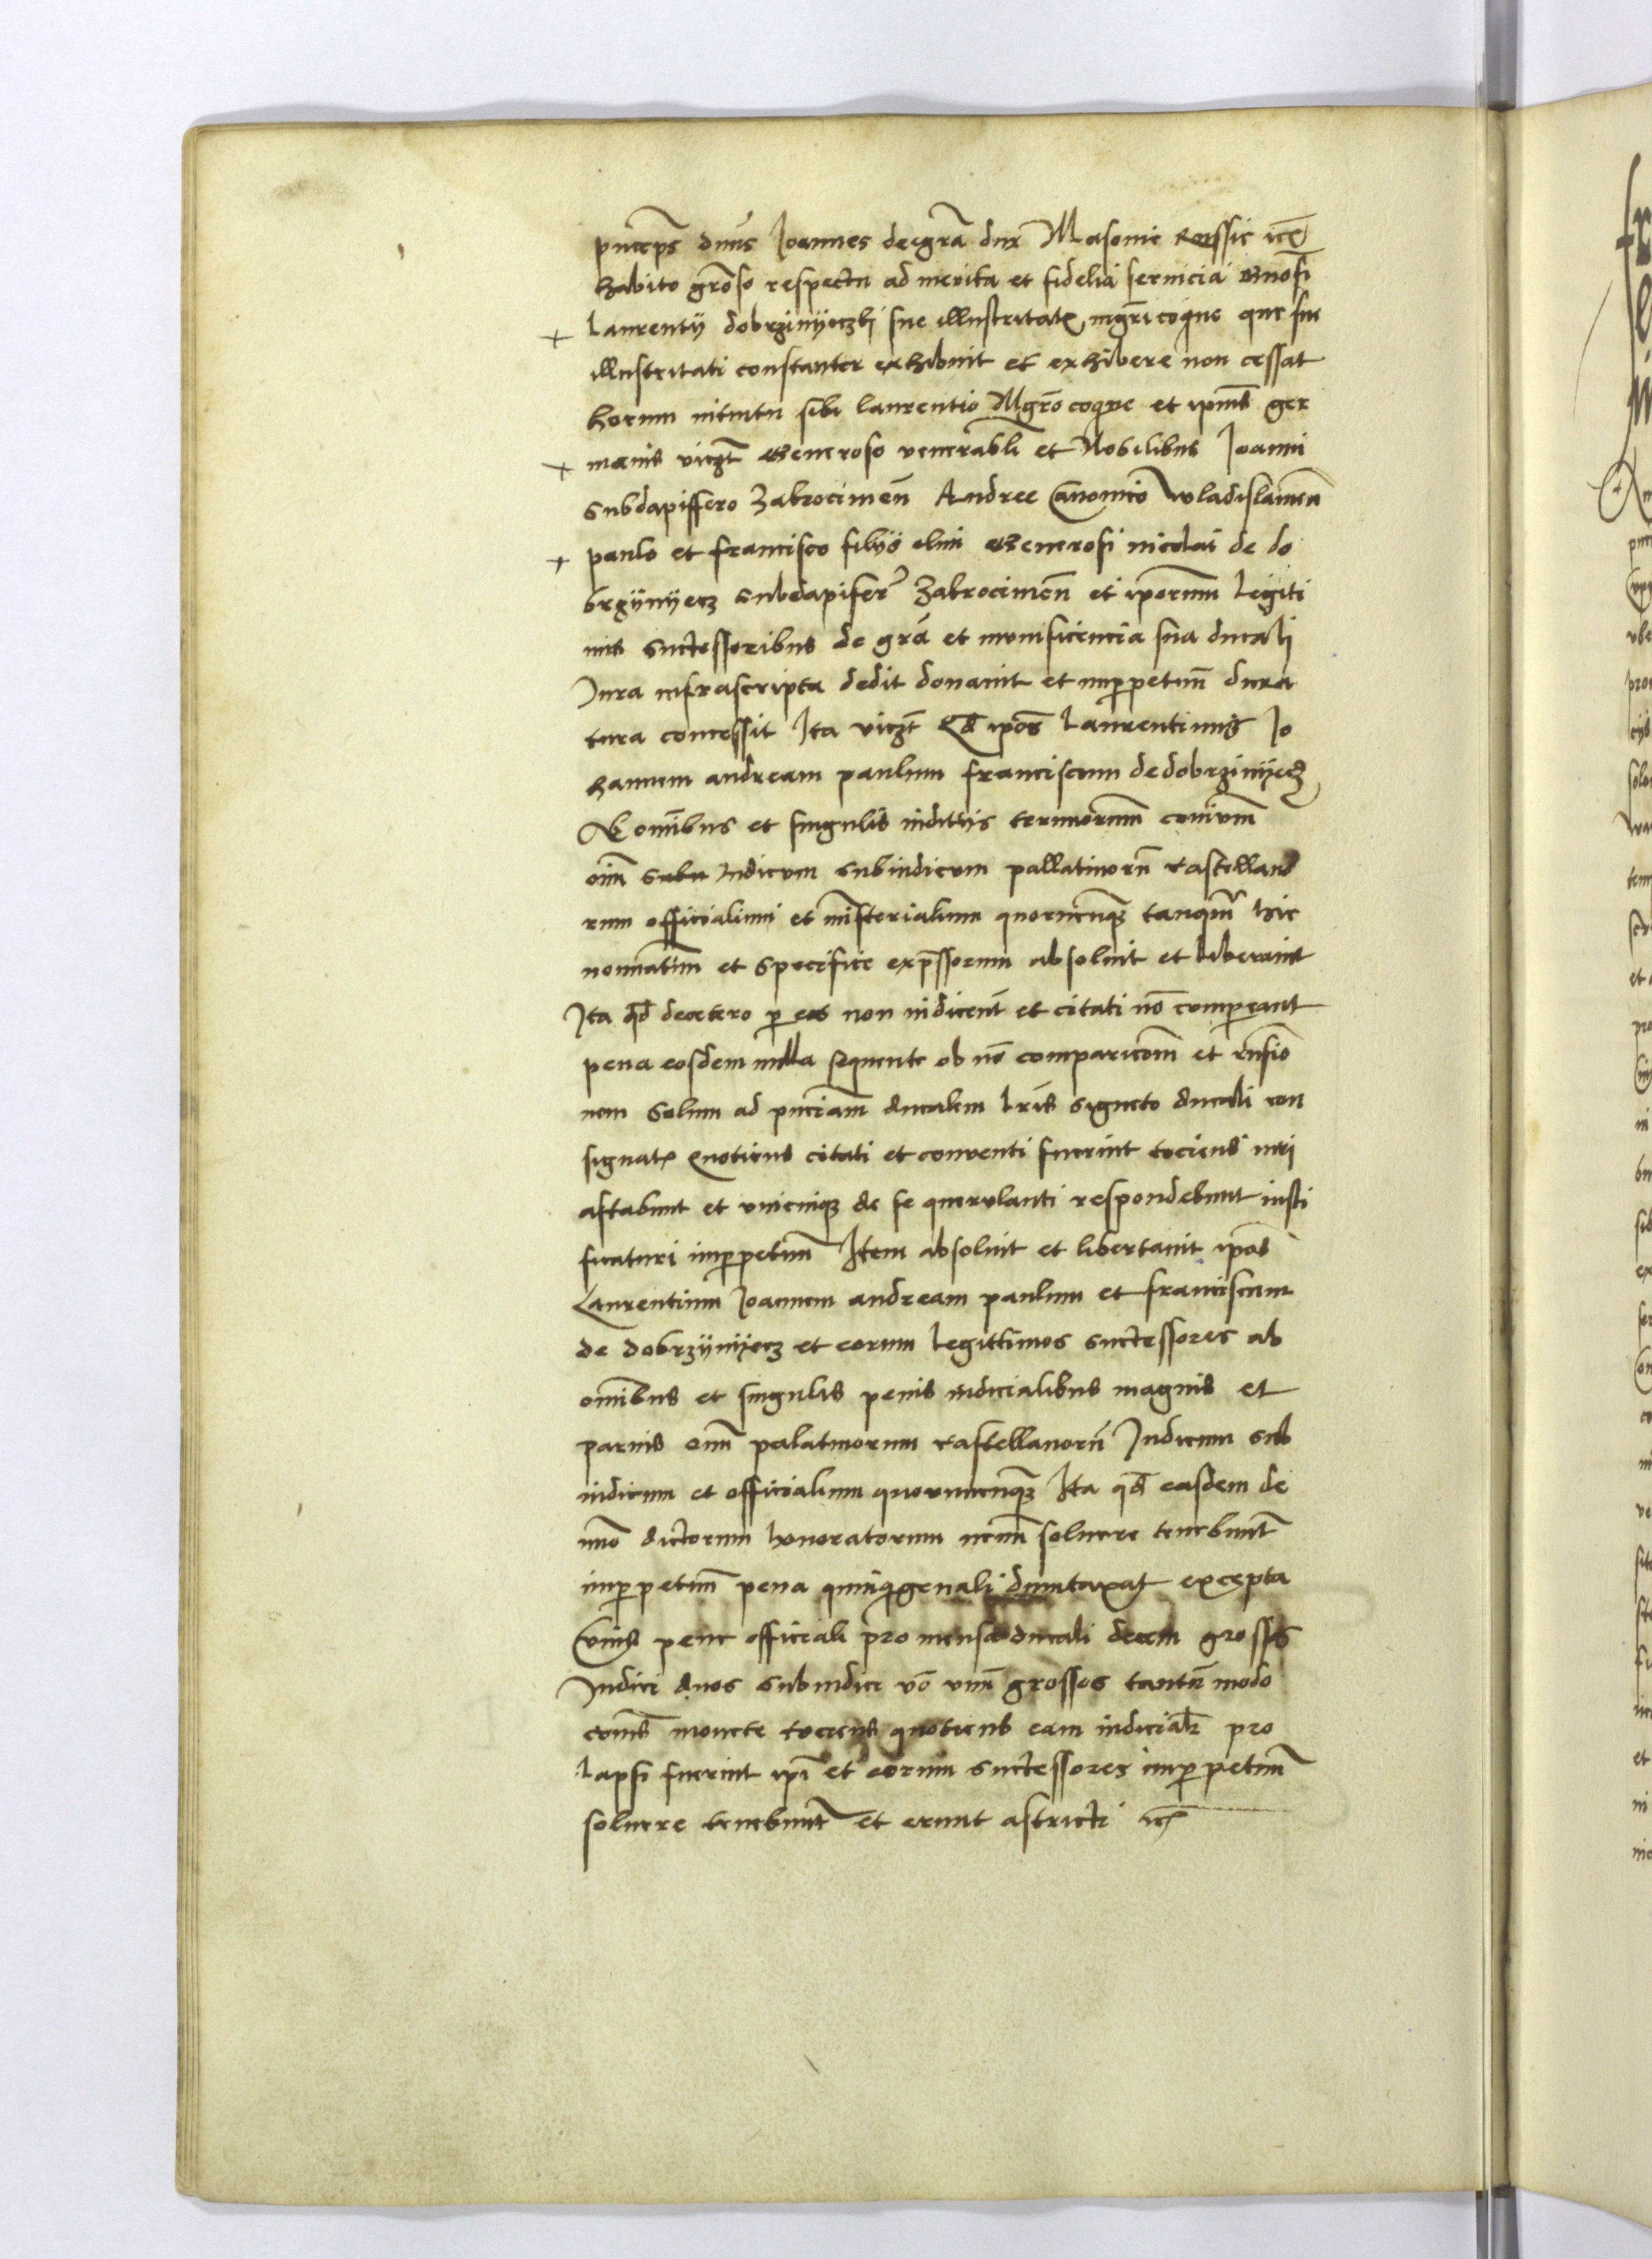 princeps dnus Joannes dei gra dux Masouie Russie ite
habito groso respectu ad merita et fidelia seruicia Gnosi
+ Laurentij dobrzinijeczkj sue illustritatis mgri coque que sue
illustritati constanter exhibuit et exhibere non cessat
horum intuitu sibi laurentio Mgro coque et ipius ger
+ manis viczt Generoso venerabli et Nobilibus Joanni
subdapiffero Zakrocimen Andree Canonico wladislauien
+ paulo et francisco filijs olim Generosi nicolai de do
brzijnijecz subdapiferi Zakrocimen et iporum legiti
mis suctessoribus de gra et munificencia sua ducali
Jura infrascripta dedit donauit et imperpetuu dura
tura concessit Ita viczt Qd ipos Laurentium Jo
hannem andream paulum franciscum de dobrzinijecz
Ab omibus et singulis iudicijs terminorum
oim Judicum subiudicum pallatinoru Castellano
rum officialium et misterialium quorumcuqz tanqm hic
nominatim et specifice expssorum absoluit et liberauit
Ita qd decetero p eos non iudicent et citati no compareant
pena eosdem nulla sequente ob no comparicom et rnsio
nem Solum ad pnciam ducalem lris signeto ducali con
signatis quotiens citati et conuenti fuerint tociens iuri
astabunt et vnicuiqz de se querulanti respondebunt iusti
ficaturi imperpetuu Item absoluit et libertauit ipos
Laurentium Joannem andream paulum et franciscum
de dobrzijnijecz et eorum legittimos suctessores ab
omibus et singulis penis iudicialibus magnis et
paruis oim palatinorum castellanoru Judicum sub
iudicum et officialium quorumcuqz Ita qd easdem
dictorum honoratorum nemi soluere tenebunt
imperpetuu pena quinqgenali dumtaxat excepta
Cuius pene officiali pro mensa ducali decem grossos
Judici duos subiudici vo vnu grossos tantu modo
cois monete tociens quotiens eam iudicialr pro
lapsi fuerint ipi et eorum suctessores imperpetuu
soluere tenebunt et erunt astricti itc